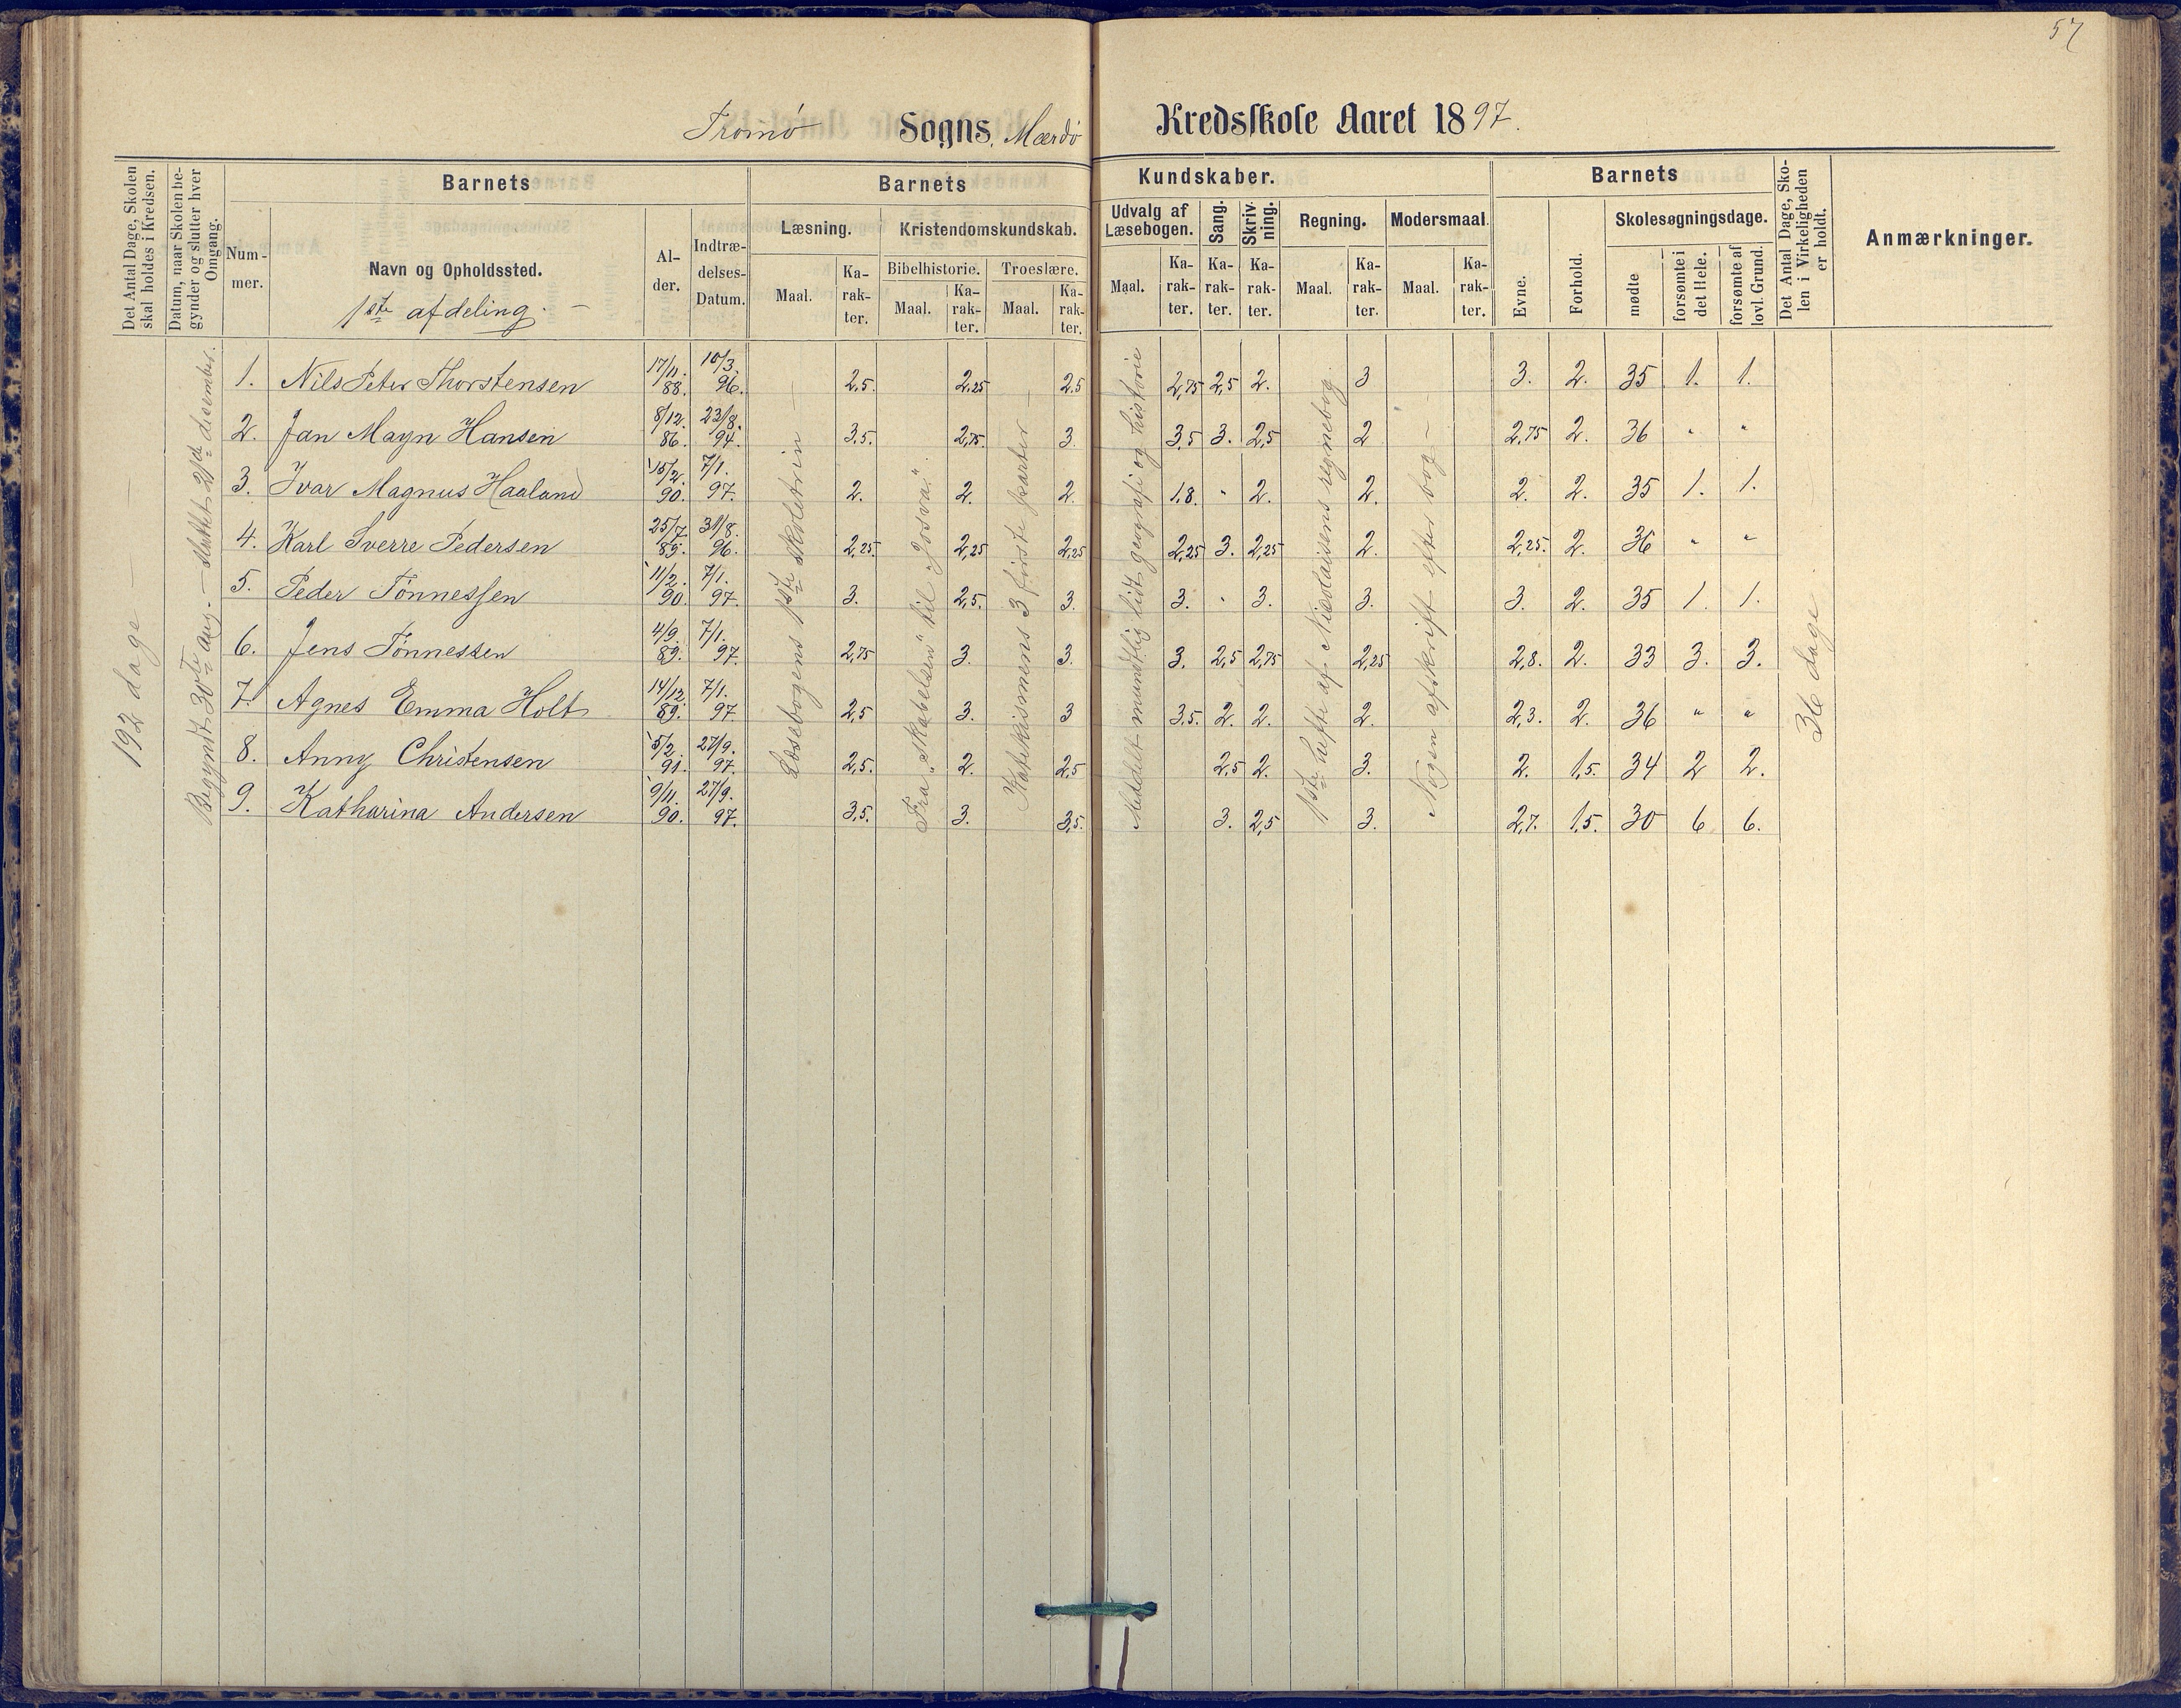 57
Tromø Sogns. Mærdø Kredsskole Aaret 1897.
Det Antal Dage, Skolen skal holdes i Kredsen.
Datum, naar Skolen begynder og slutter hver Omgang.
Barnets
Nummer.
Navn og Opholdssted.
1ste afdeling.
Alder.
Indtrædelses-Datum.
Barnets Kundskaber.
Læsning.
Maal. Karakter.
Kristendomskundskab.
Bibelhistorie. Troeslære.
Maal. Karakter. Maal. Karakter.
Udvalg af Læsebogen.
Maal. Karakter.
Sang. Karakter.
Skrivning. Karakter.
Regning.
Maal. Karakter.
Modersmaal.
Maal. Karakter.
Barnets
Evne. Forhold.
Skolesøgningsdage.
mødte forsømte i det Hele. forsømte af lovl. Grund.
Det Antal Dage, Skolen i Virkeligheden er holdt.
Anmærkninger.
192 dage —
Begyndt 30te aug. — sluttet 21de desember.
Læsebogens 1ste skoletrin —
Fra „Skabelsen" til „Josva".
Katekismens 3 første parter —
Meddelt mundtlig lidt geografi og historie
1ste hefte af Nicolaisens regnebog.
Nogen afskrift efter bog —
36 dage
1. Nils Peter Thorstensen 17/11. 88. 10/3. 96. 2,5. 2,25 2,5 2,75 2,5 2. 3 3. 2. 35 1. 1.
2. Jan Mayn Hansen 8/12. 86. 23/8. 94. 3,5. 2,75. 3. 3,5 3. 2,5 2 2,75 2. 36 " "
3. Ivar Magnus Haaland 15/2. 90. 7/1. 97. 2. 2. 2. 1,8. " 2. 2. 2. 2. 35 1. 1.
4. Karl Sverre Pedersen 25/7. 89. 31/8. 96. 2,25. 2,25 2,25 2,25 3. 2,25 2. 2,25. 2. 36 " "
5. Peder Tønnessen 11/2. 90. 7/1. 97. 3. 2,5. 3. 3. " 3. 3. 3. 2. 35 1. 1.
6. Jens Tønnessen 4/9. 89. 7/1. 97. 2,75 3. 3. 3. 2,5 2,75 2,25 2,8. 2. 33 3. 3.
7. Agnes Emma Holt 14/12. 89. 7/1. 97. 2,5 3. 3 3,5. 2. 2. 2. 2,3. 2. 36 " "
8. Anny Christensen 5/2. 91. 27/9. 97. 2,5. 2. 2,5 2,5 2. 3. 2. 1,5. 34 2 2.
9. Katharina Andersen 9/11. 90. 27/9. 97. 3,5. 3. 3,5. 3. 2,5 3. 2,7. 1,5. 30 6 6.